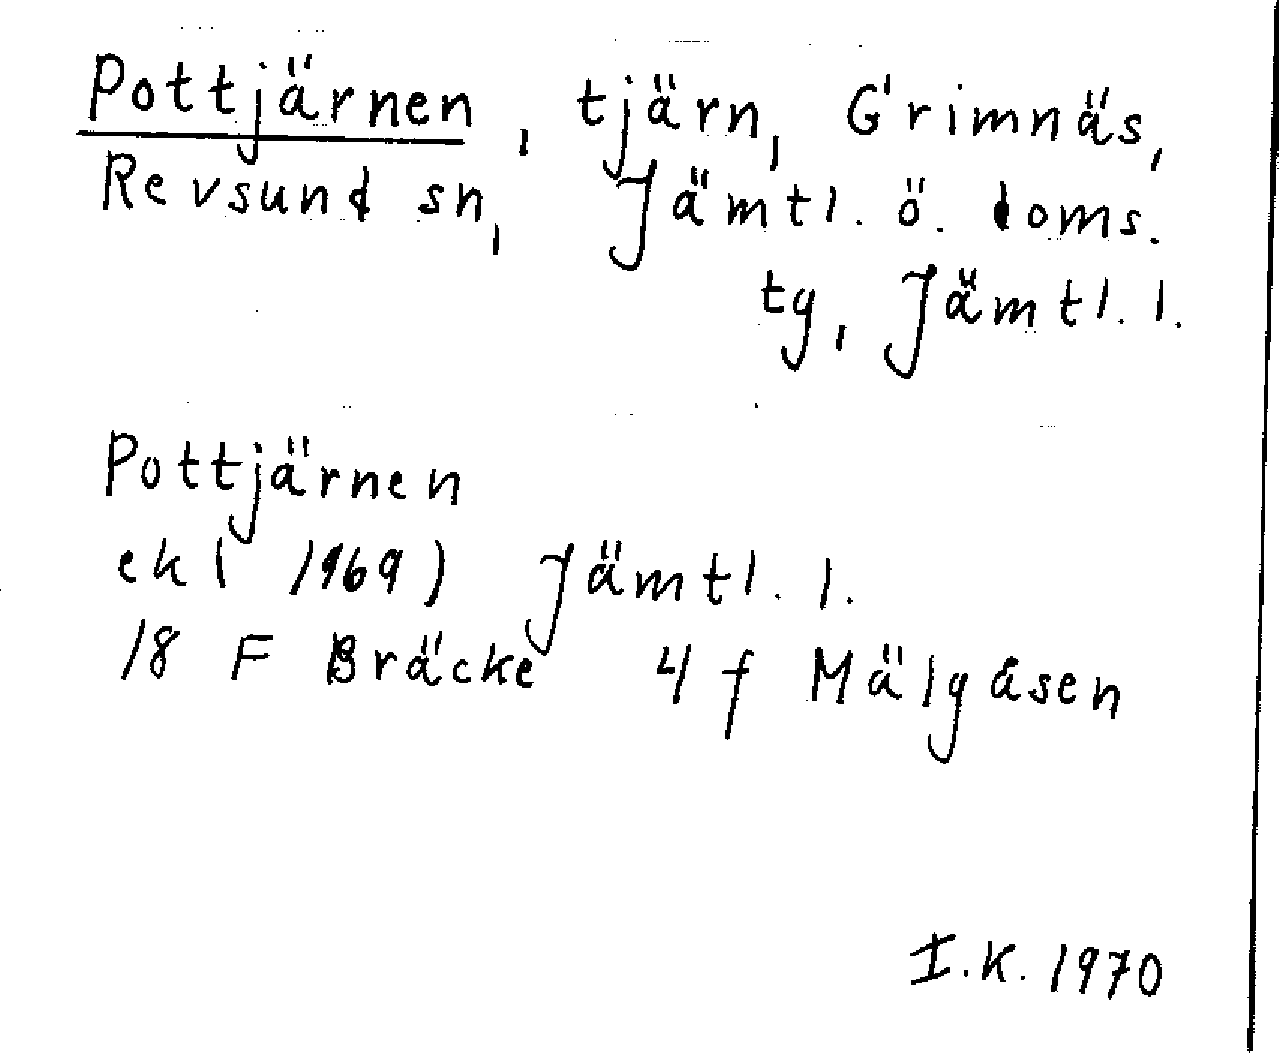 Pottjärnen, tjärn, Grimnäs,
Revsund sn, Jämtl. ö. doms.
tg, Jämtl. l.
Pottjärnen
ek (1969) Jämtl. l.
18 F Bräcke 4 f Mälgåsen
I.K. 1970